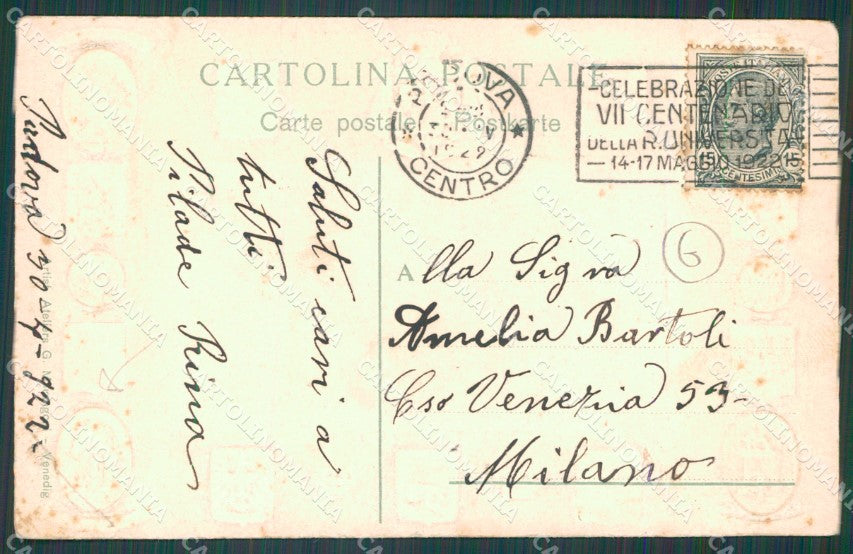 CARTOLINA POSTALE
Carte postale Postkarte
PADOVA
CENTRO
CELEBRAZIONE DEL
VII CENTENARIO
DELLA R. UNIVERSITA
14-17 MAGGIO 1922
POSTE ITALIANE
15 15
CENTESIMI
6
Padova 30-4-922
Saluti cari a
tutti
Pilade Rina
Alla Sigra
Amelia Bartoli
Cso Venezia 53-
Milano
Venedig
CARTOLINOMANIA